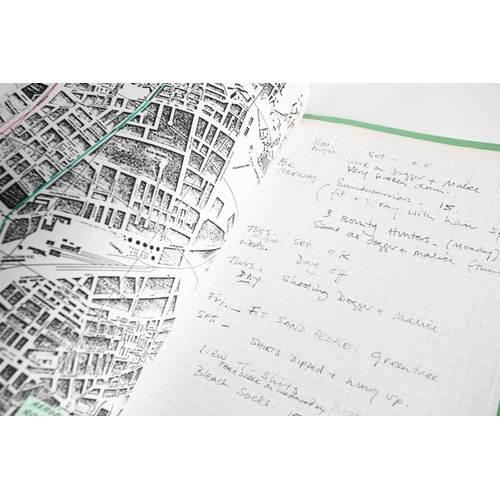 Mon. Set - O.K
Night work on Dogger + Malice
very broken down
FOR Sandwarriors. 15.
THURSDAY (fit + spray with hair
3 Bounty Hunters - (Monday)
Same as Dogger + Malice
Tues. set. O.K
Weds. Day off
Thurs.
DAY Shooting Dogger + Malice -
Fri. - FIT SAND PEOPLE. Greentree
SAT. -
SHIRTS DIPPED + hung up.
New T. Shirts
Bleach Socks.